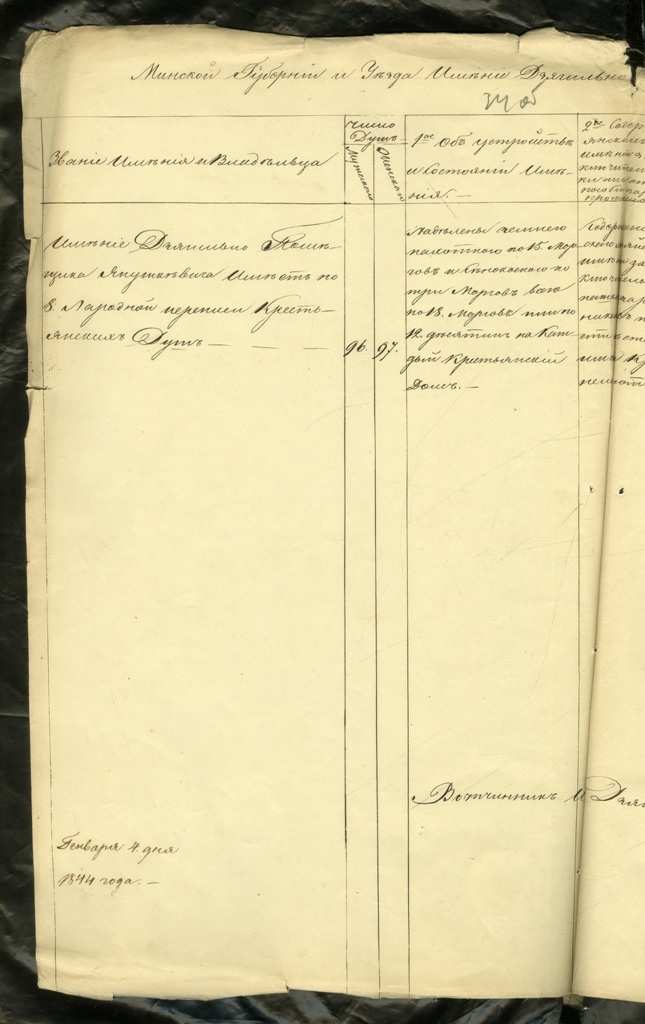 Минской Губерніи и Уѣзда Имѣніе Дзягильно
Званіе Имѣнія и Владѣльца
число
Душъ
Мужеска
Женска
1ое Объ устройствѣ
и Состояніи Имѣ-
нія. —
2ое Содер
Имѣніе Дзягильно Помѣ-
щика Янушкѣвича Имѣетъ по
8. Народной переписи Кресть-
янскихъ Душъ —
96. 97.
Надѣлены землею
пахотною по 15. Мор-
говъ и Сѣнокосною по
три Морговъ всего
по 18. Морговъ или по
12. десятинъ на Каж-
дый Крестьянскій
Домъ. —
Вотчинникъ И Дзяг
Генваря 4. дня
1844 года. —